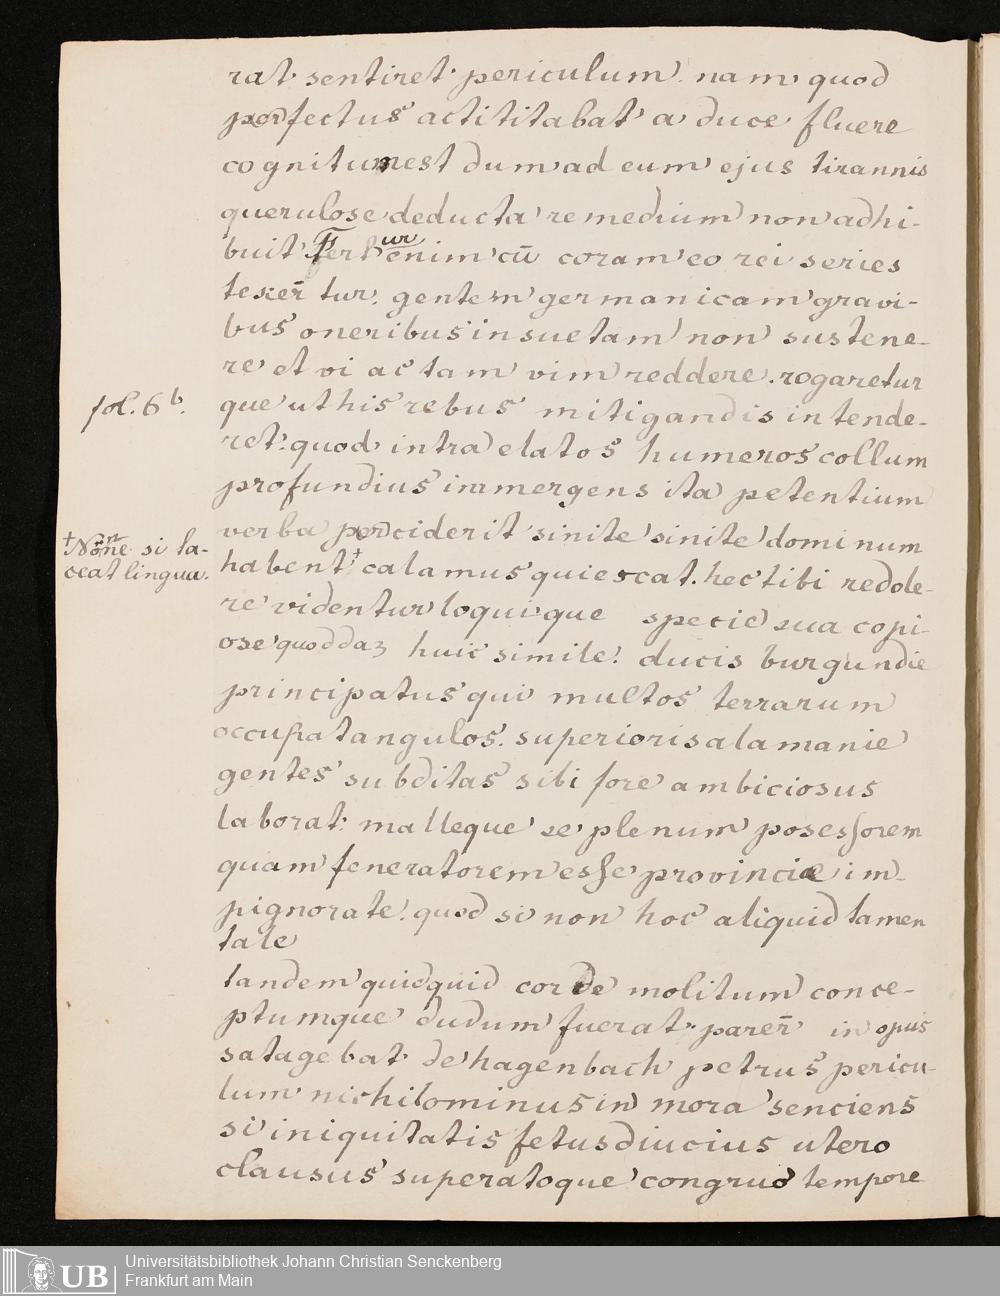 rat sentiret periculum. nam quod
perfectus actititabat a duce fluere
cognitum est dum ad eum ejus tirannis
querulose deducta remedium non adhi-
buit Fertur enim cū coram eo rei series
texer̄tur. gentem germanicam gravi-
bus oneribus insuetam non sustene-
re et vi actam vim reddere. rogaretur
fol. 6b.
que ut his rebus mitigandis intende-
ret: quod intra elatos humeros collum
profundius immergens ita petentium
verba perciderit sinite sinite dominum
† si ta-
ceat lingua.
habent† calamus quiescat. hec tibi reddde-
re videntur loquique specie sua copi-
ose quoddaz huic simile. ducis burgundie
principatus qui multos terrarum
occupat angulos. superioris alamanie
gentes subditas sibi fore ambiciosus
laborat. malleque se plenum posessorem
quam feneratorem esse provincie im-
pignorate. quod si non hoc aliquid tamen
tale
tandem quidquid corde molitum conce-
ptumque dudum fuerat. parer̄ in opus
satagebat de hagenbach petrus pericu-
lum nichilominus in mora senciens
si iniquitatis fetus diucius utero
clausus superatoque congruo tempore
Universitätsbibliothek Johann Christian Senckenberg
Frankfurt am Main
UB